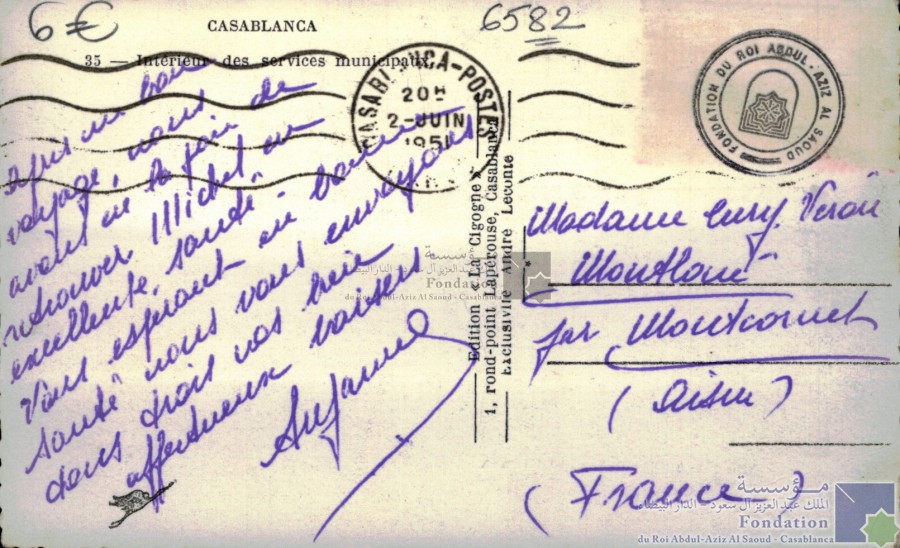 6 €
6582
CASABLANCA
35 — Intérieur des services municipaux
CASABLANCA-POSTES
20H
2-JUIN
195
FONDATION DU ROI ABDUL-AZIZ AL SAOUD
Après un bon
voyage, nous
avons eu la joie de
retrouver Michel en
excellente santé -
Vous espérant en bonne
santé nous vous envoyons
tous trois nos bien
affectueux baisers
Suzanne
Edition « La Cigogne »
1, rond-point Lapérouse, Casablanca
Exclusivité André Leconte
Madame
Montloué
par Montcornet
(Aisne)
(France)
مؤسسة
الملك عبد العزيز آل سعود - الدار البيضاء
Fondation
du Roi Abdul-Aziz Al Saoud - Casablanca
مؤسسة
الملك عبد العزيز آل سعود - الدار البيضاء
Fondation
du Roi Abdul-Aziz Al Saoud - Casablanca